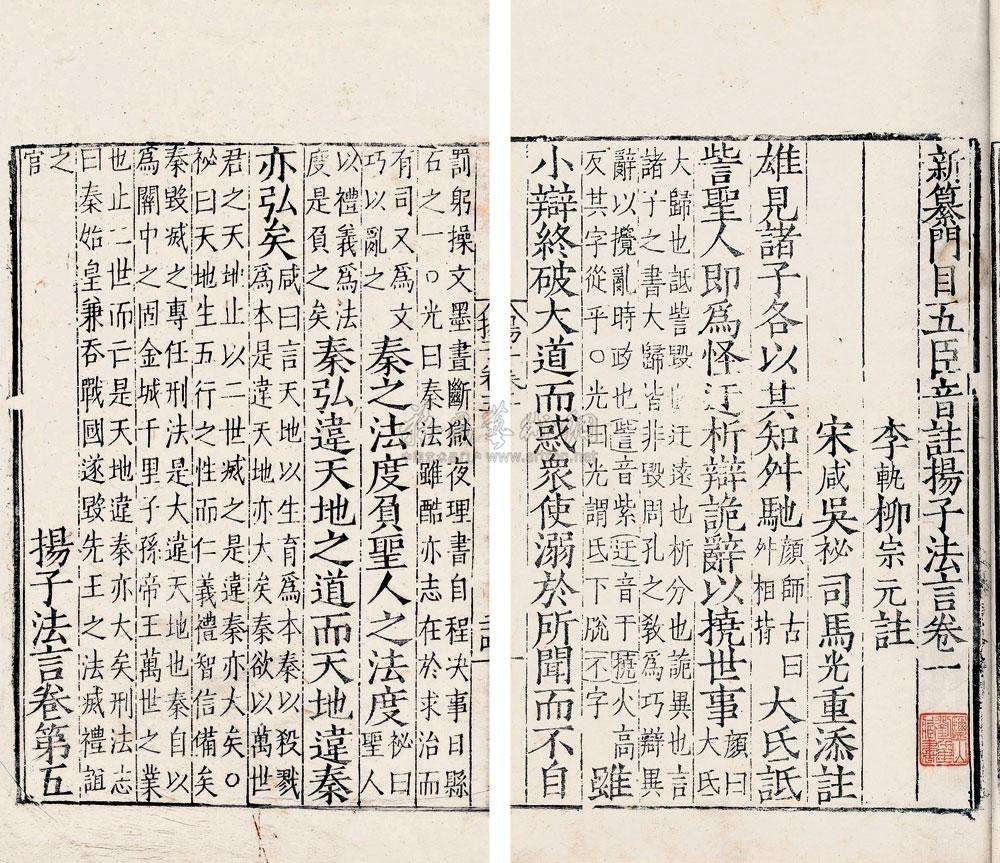 新纂門目五臣音註揚子法言卷一
李軌柳宗元註
宋咸吳祕司馬光重添註
雄見諸子各以其知舛馳顏師古曰舛相背大氐詆
訾聖人即爲怪迂析辯詭辭以撓世事顏曰大氐
大歸也詆訾毀迂遠也析分也詭異也言
諸子之書大歸皆非毀周孔之敎爲巧辯異
辭以攪亂時政也訾音紫迂音于撓火高
反其字從乎○光曰光謂氐下脱不字雖
小辯終破大道而惑衆使溺於所聞而不自
罰躬操文墨晝斷獄夜理書自程决事日縣
石之一○光曰秦法雖酷亦志在於求治而
有司又爲文巧以亂之秦之法度負聖人之法度祕曰聖人
以禮義爲法度是負之矣秦弘違天地之道而天地違秦
亦弘矣咸曰言天地以生育爲本秦以殺戮爲本是違天地亦大矣秦欲以萬世
君之天地止以二世滅之是違秦亦大矣○
祕曰天地生五行之性而仁義禮智信備矣
秦毀滅之專任刑法是大違天地也秦自以
爲關中之固金城千里子孫帝王萬世之業
也止二世而亡是天地違秦亦大矣刑法志
曰秦始皇兼吞戰國遂毀先王之法滅禮誼
之
官
揚子法言卷第五